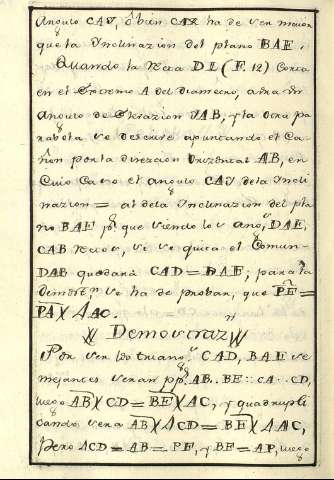 Angulo CAI, ô bien CAX ha de ser maior
que la Inclinazion del plano BAE.
Quando la Recta DL (F. 12) Corta
en el Extremo A del Diametro, adra
Angulo de Elevazion IAB, y la otra pa
rabola se descrive apuntando el Ca
ñon por la direccion Orizontal AB, en
Cuio Caso el angulo CAI dela Incli
nazion = al dela Inclinazion del pla
no BAE pr. que siendo los ang.s DAE,
CAB Rectos, si se quita el Comun
DAB quedara CAD = BAE; para la
demostr.n se ha de probar, que PE =
PA X 4AC.
Demostraz.n
Por ser los triang.s CAD, BAE se
mejantes seran pp. AB. BE :: CA . CD,
luego AB X CD = BE X AC, y quadrupli
cando sera AB X 4CD = BE X 4AC,
Pero 4CD = AB = PE, y BE = AP, luego